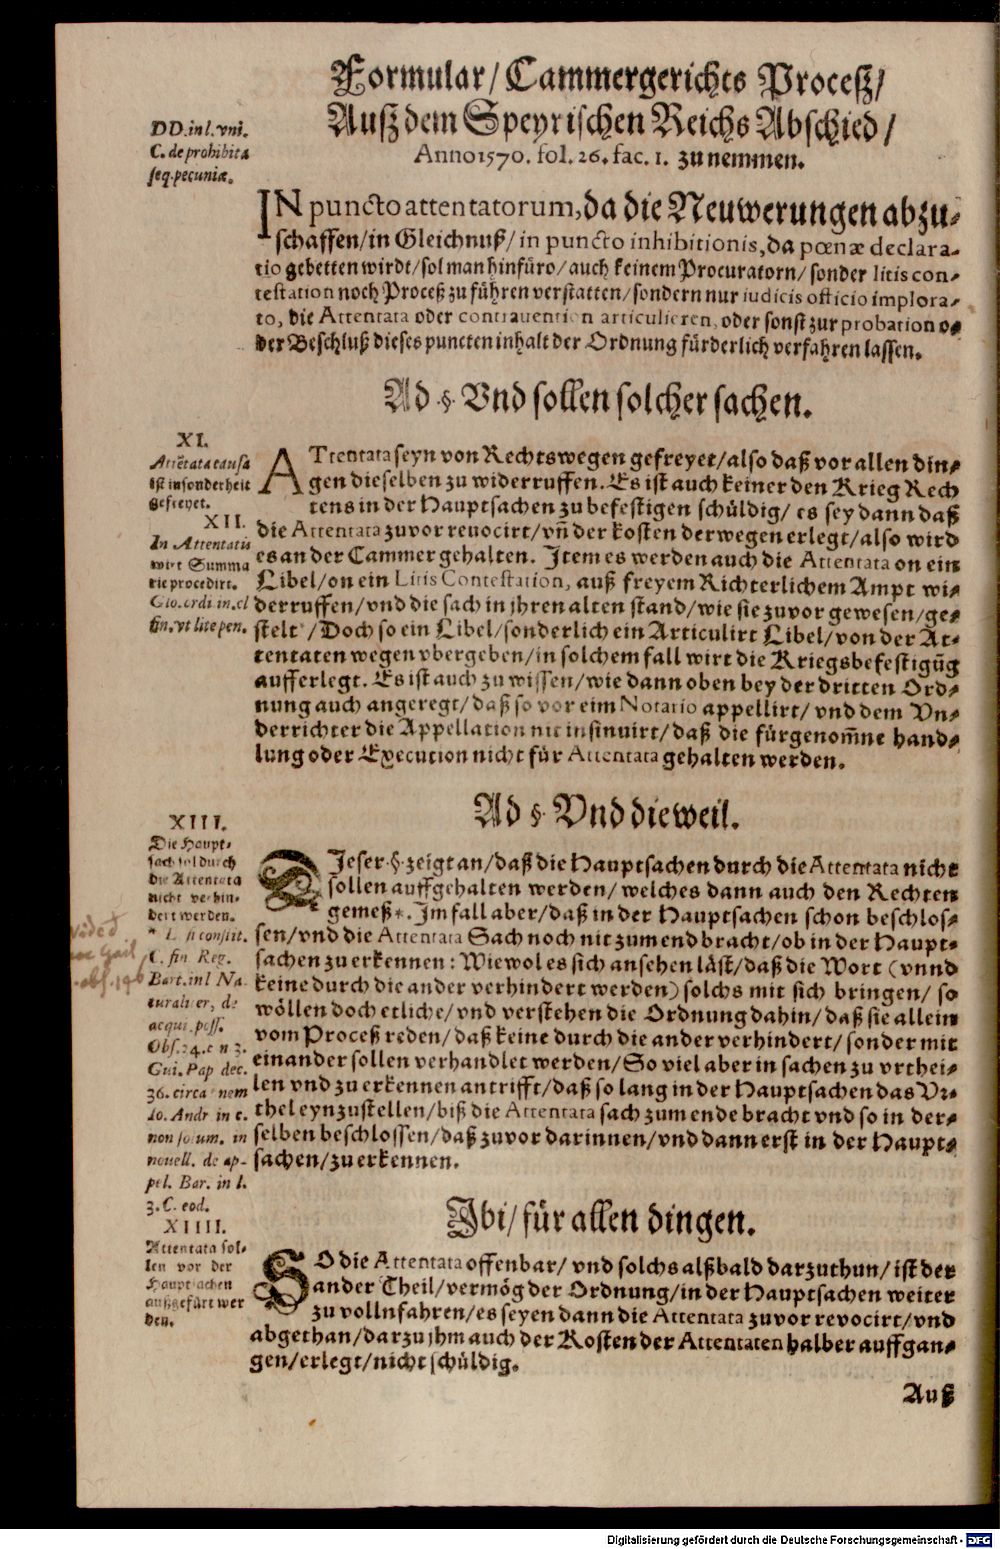 Formular/ Cammergerichts Proceß/
Außdem Speyrischen Reichs Abschied/
Anno 1570. fol. 26. fac. 1. zunemmen.
DD. in l. vni.
C. de prohibita
seq. pecuniæ.
IN puncto attentatorum, da die Neuwerungen abzu-
schaffen/ in Gleichnuß/ in puncto inhibitionis, da pœnæ declara-
tio gebetten wirdt/ sol man hinfüro/ auch keinem Procuratorn/ sonder litis con-
testation noch Proceß zu führen verstatten/ sondern nur iudicis officio implora-
to, die Attentata oder contrauention articulieren, oder sonst zur probation o-
der Beschluß dieses puncten inhalt der Ordnung fürderlich verfahren lassen.
Ad §. Vnd sollen solcher sachen.
XI.
Attētata causa
ist insonderheit
gefreyet.
XII.
In Attentatis
wirt Summa
rie procedirt.
Glo. ordi. in. cl
fin. vt lite pen.
ATtentata seyn von Rechtswegen gefreyet/ also daß vor allen din-
gen dieselben zu widerruffen. Es ist auch keiner den Krieg Rech
tens in der Hauptsachen zu befestigen schüldig/ es sey dann daß
die Attentata zuvor reuocirt/ vñ der kosten derwegen erlegt/ also wird
es an der Cammer gehalten. Item es werden auch die Attentata on ein
Libel/ on ein Litis Contestation, auß freyem Richterlichem Ampt wi-
derruffen/ vnd die sach in jhren alten stand/ wie sie zuvor gewesen/ ge-
stelt/ Doch so ein Libel/ sonderlich ein Articulirt Libel/ von der At-
tentaten wegen vbergeben/ in solchem fall wirt die Kriegsbefestigūg
aufferlegt. Es ist auch zu wissen/ wie dann oben bey der dritten Ord-
nung auch angeregt/ daß so vor eim Notario appellirt/ vnd dem Vn-
derrichter die Appellation nit insinuirt/ daß die fürgenom̃ne hand-
lung oder Execution nicht für Attentata gehalten werden.
Ad §. Vnd dieweil.
XIII.
Die Haupt-
sach sol durch
die Attentata
nicht verhin-
dert werden.
* L. si constit.
C. fin Reg.
Bart. in l Na-
turaliter, de
acqui. poss.
Obs. 24. e n 3.
Gui. Pap dec.
36. circa nem
Io. Andr in c.
non solum. in
nouell. de ap-
pel. Bar. in l.
3. C. eod.
DIeser §. zeigt an/ daß die Hauptsachen durch die Attentata nicht
sollen auffgehalten werden/ welches dann auch den Rechten
gemeß*. Im fall aber/ daß in der Hauptsachen schon beschlos-
sen/ vnd die Attentata Sach noch nit zum end bracht/ ob in der Haupt-
sachen zu erkennen: Wiewol es sich ansehen läst/ daß die Wort (vnnd
keine durch die ander verhindert werden) solchs mit sich bringen/ so
wöllen doch etliche/ vnd verstehen die Ordnung dahin/ daß sie allein
vom Proceß reden/ daß keine durch die ander verhindert/ sonder mit
einander sollen verhandlet werden/ So viel aber in sachen zu vrthei-
len vnd zu erkennen antrifft/ daß so lang in der Hauptsachen das Vr-
thel eynzustellen/ biß die Attentata sach zum ende bracht vnd so in der-
selben beschlossen/ daß zuvor darinnen/ vnd dann erst in der Haupt-
sachen/ zu erkennen.
Ibi/ für allen dingen.
XIIII.
Attentata sol-
len vor der
Hauptsachen
außgefürt wer
den.
SO die Attentata offenbar/ vnd solchs alßbald darzuthun/ ist der
ander Theil/ vermög der Ordnung/ in der Hauptsachen weiter
zu vollnfahren/ es seyen dann die Attentata zuvor revocirt/ vnd
abgethan/ darzu jhm auch der Kosten der Attentaten halber auffgan-
gen/ erlegt/ nicht schüldig.
Auß
Digitalisierung gefördert durch die Deutsche Forschungsgemeinschaft - DFG